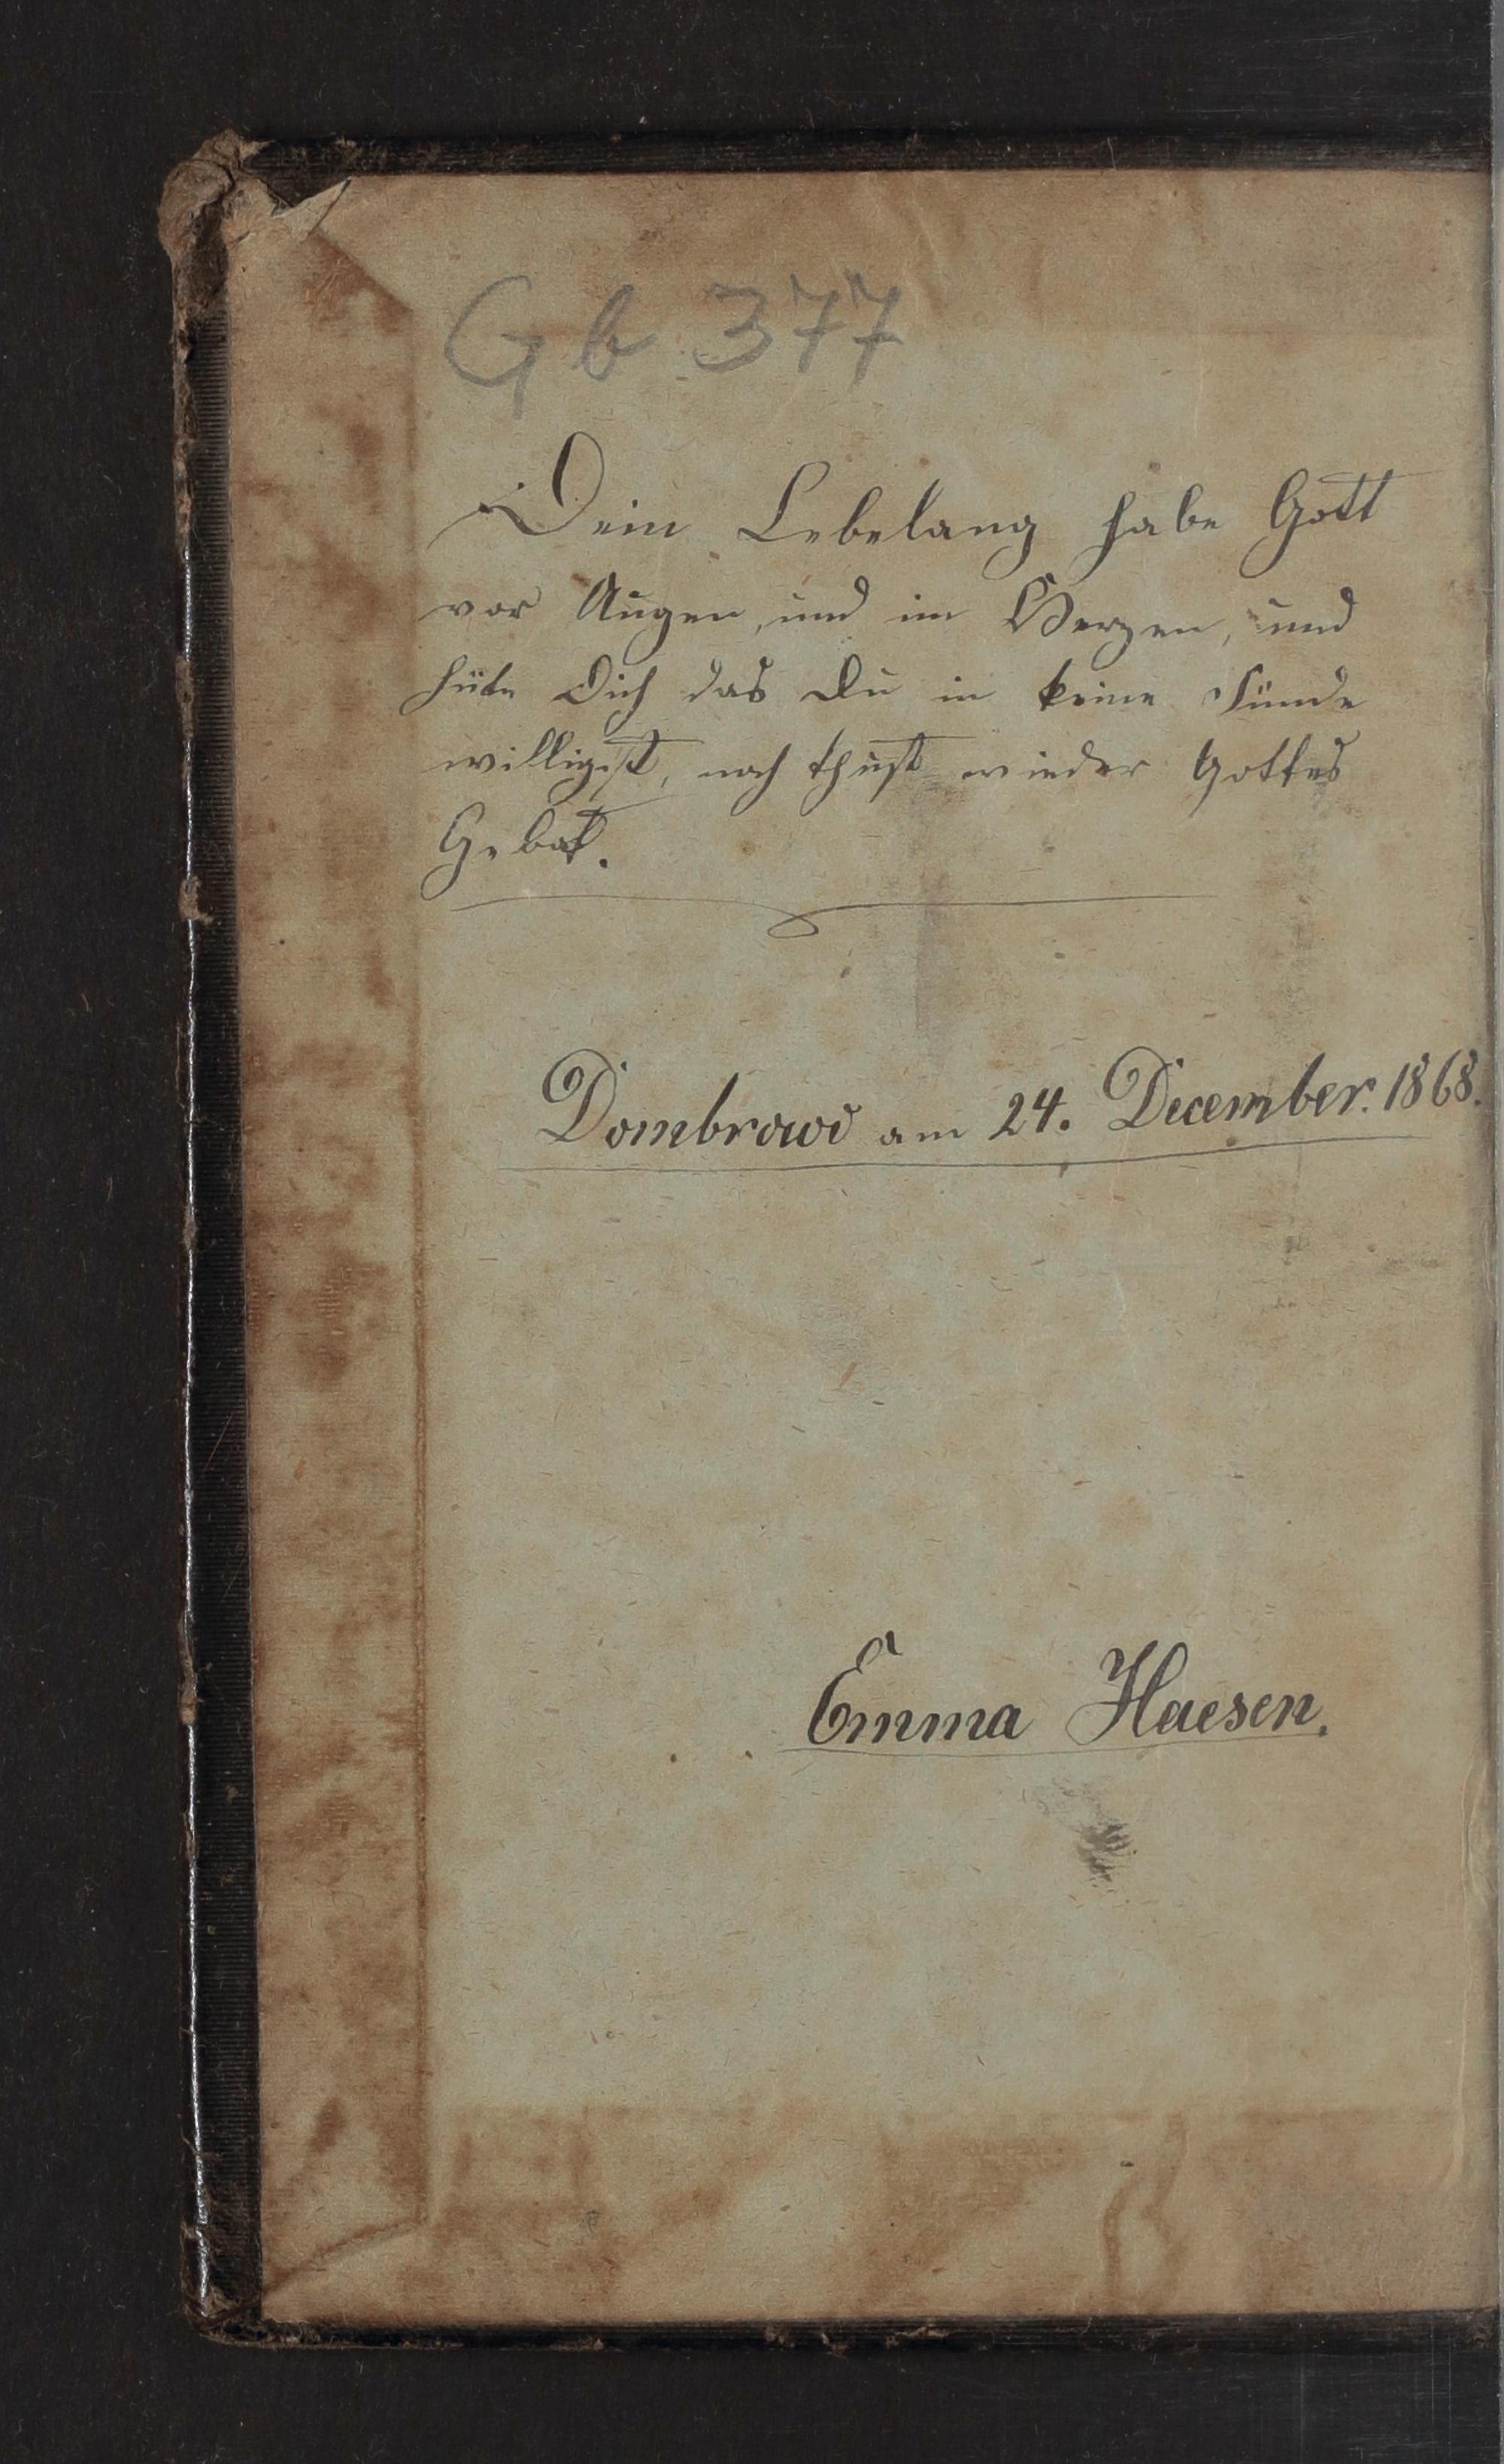 Gb 377
Dein Lebelang habe Gott
vor Augen, und im Herzen, und
hüte Dich das Du in keine Sünde
willigst, noch thust wieder Gottes
Gebot.
Dombrowo am 24. December. 1868.
Emma Haesen.